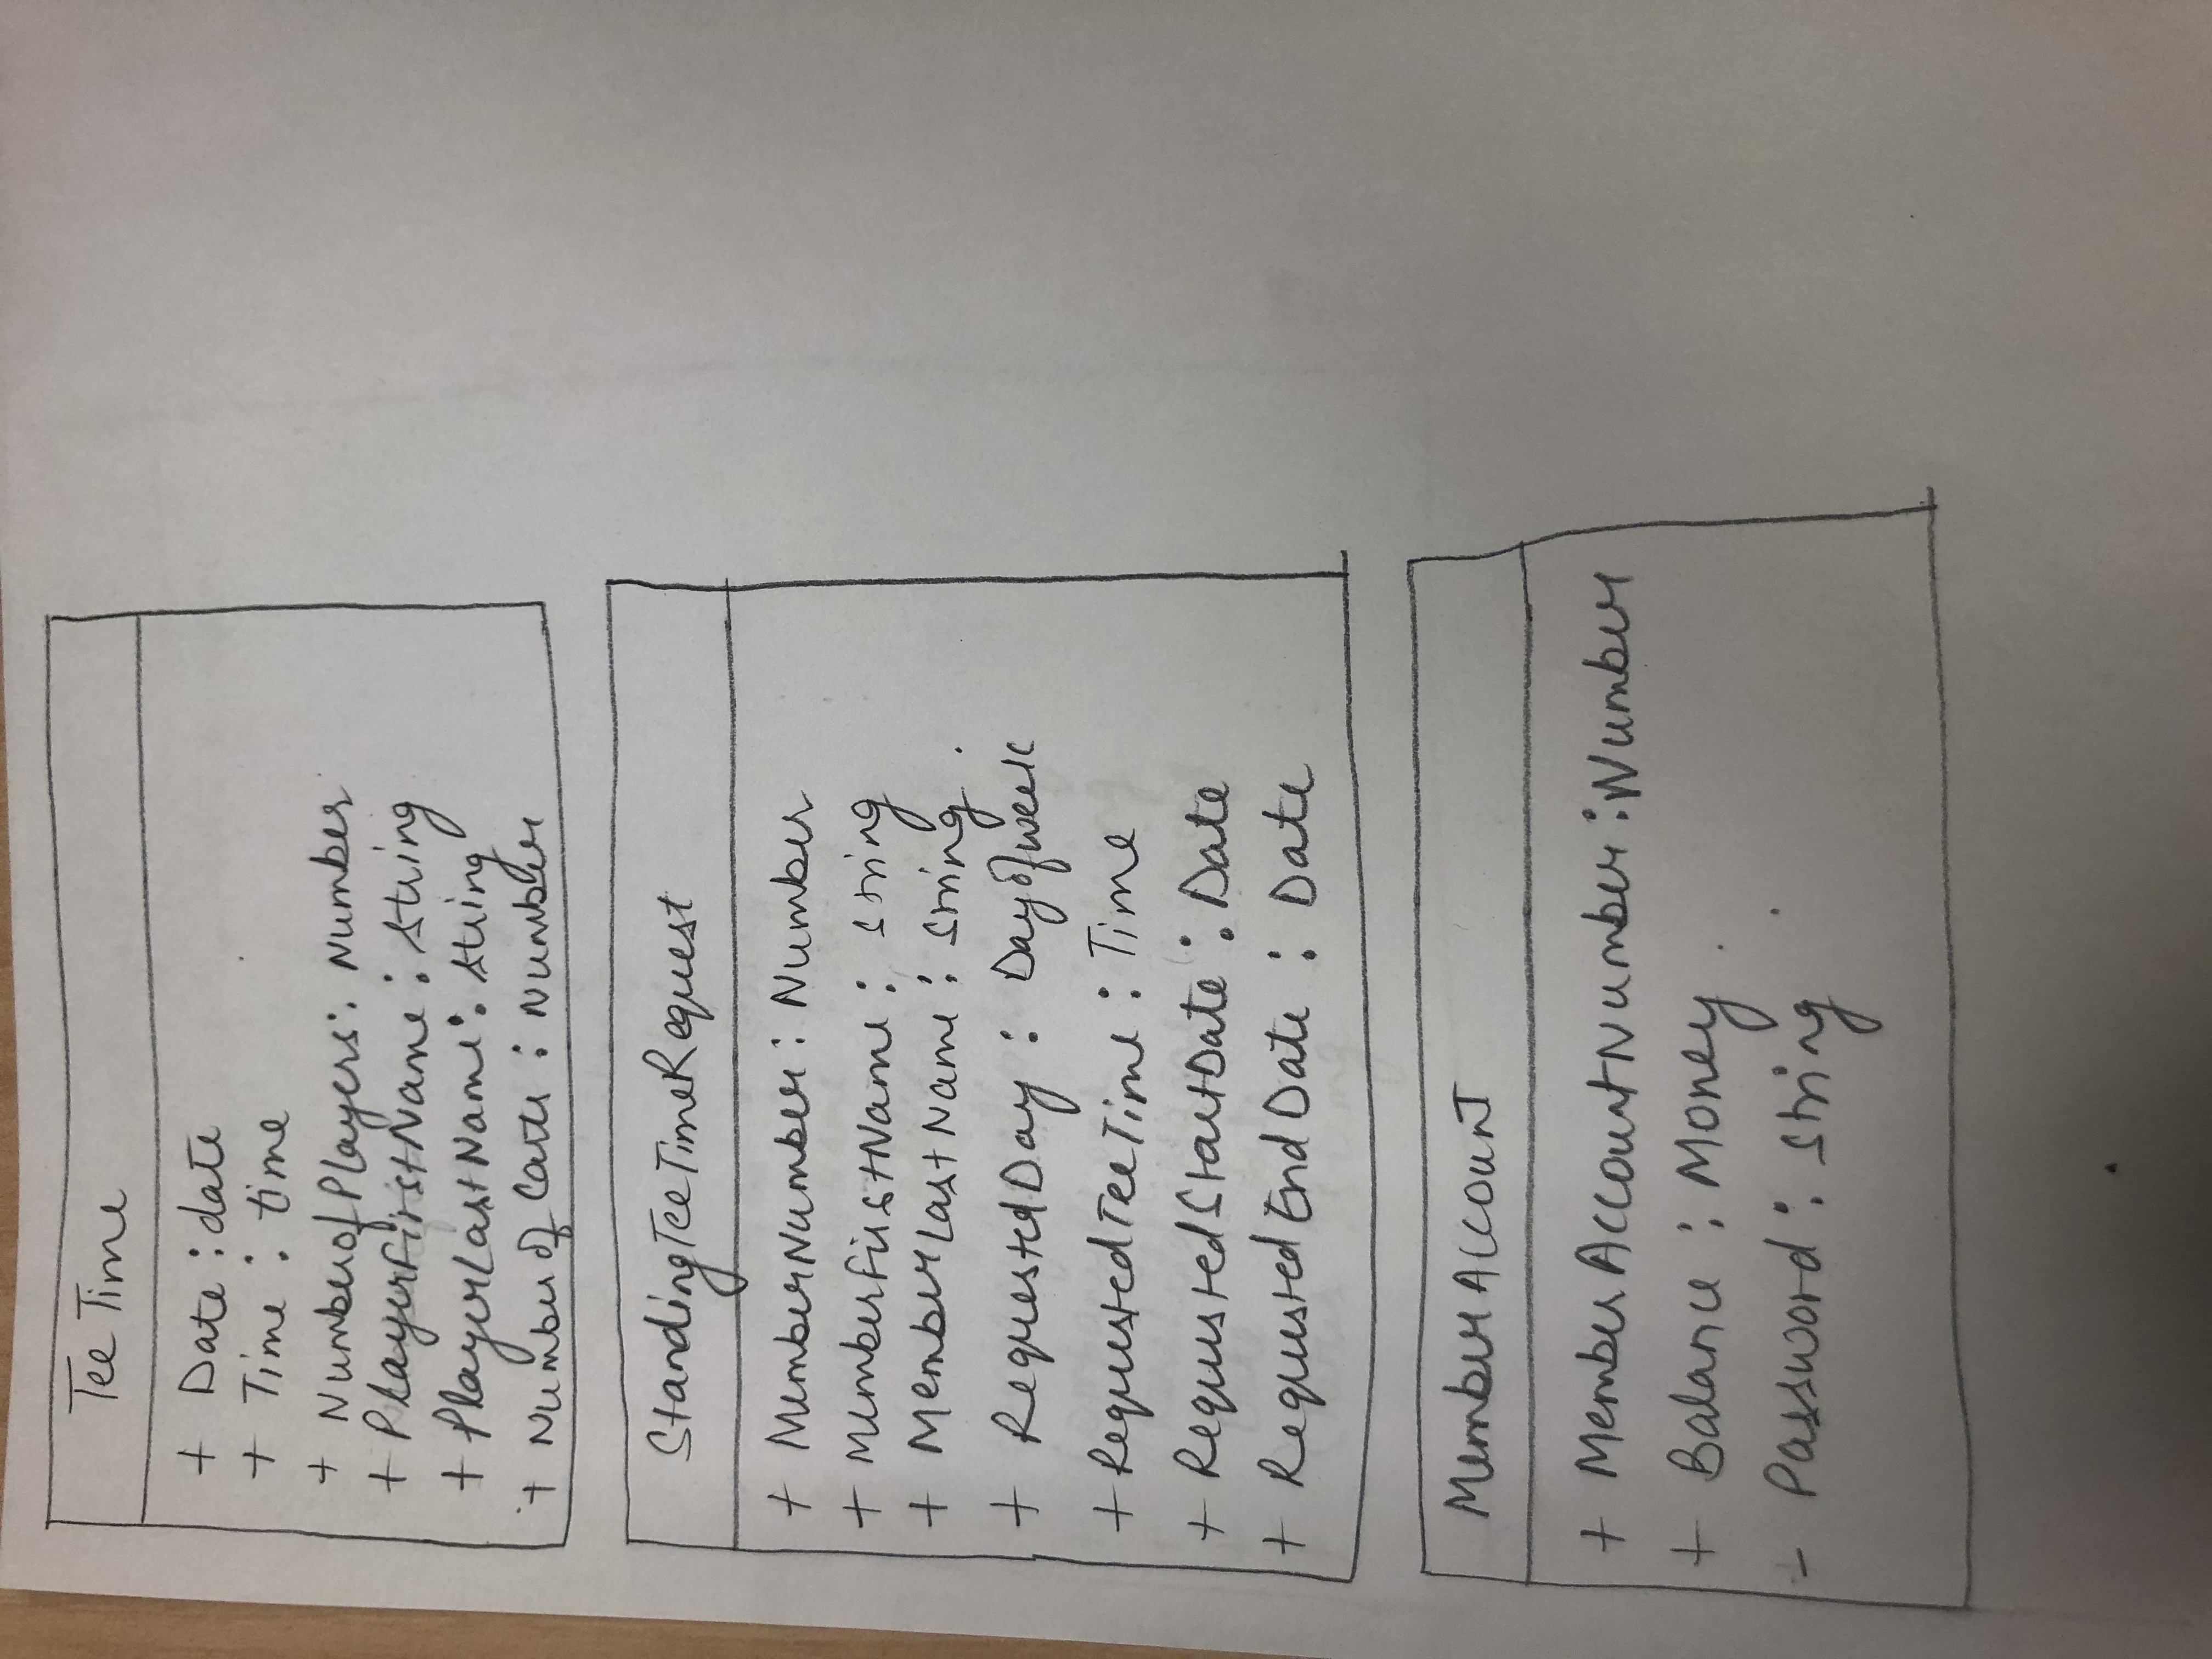 TeeTime
+ Date : date
+ Time : time
+ NumberofPlayers : Number
+ PlayerFirstName : String
+ PlayerLastName : String
+ Number of Carts : Number
StandingTeeTimeRequest
+ MemberNumber : Number
+ MemberFirstName : String
+ MemberLastName : String
+ RequestedDay : Dayofweek
+ RequestedTeeTime : Time
+ RequestedStartDate : Date
+ RequestedEndDate : Date
MemberAccount
+ MemberAccountNumber : Number
+ Balance : Money
- Password : String